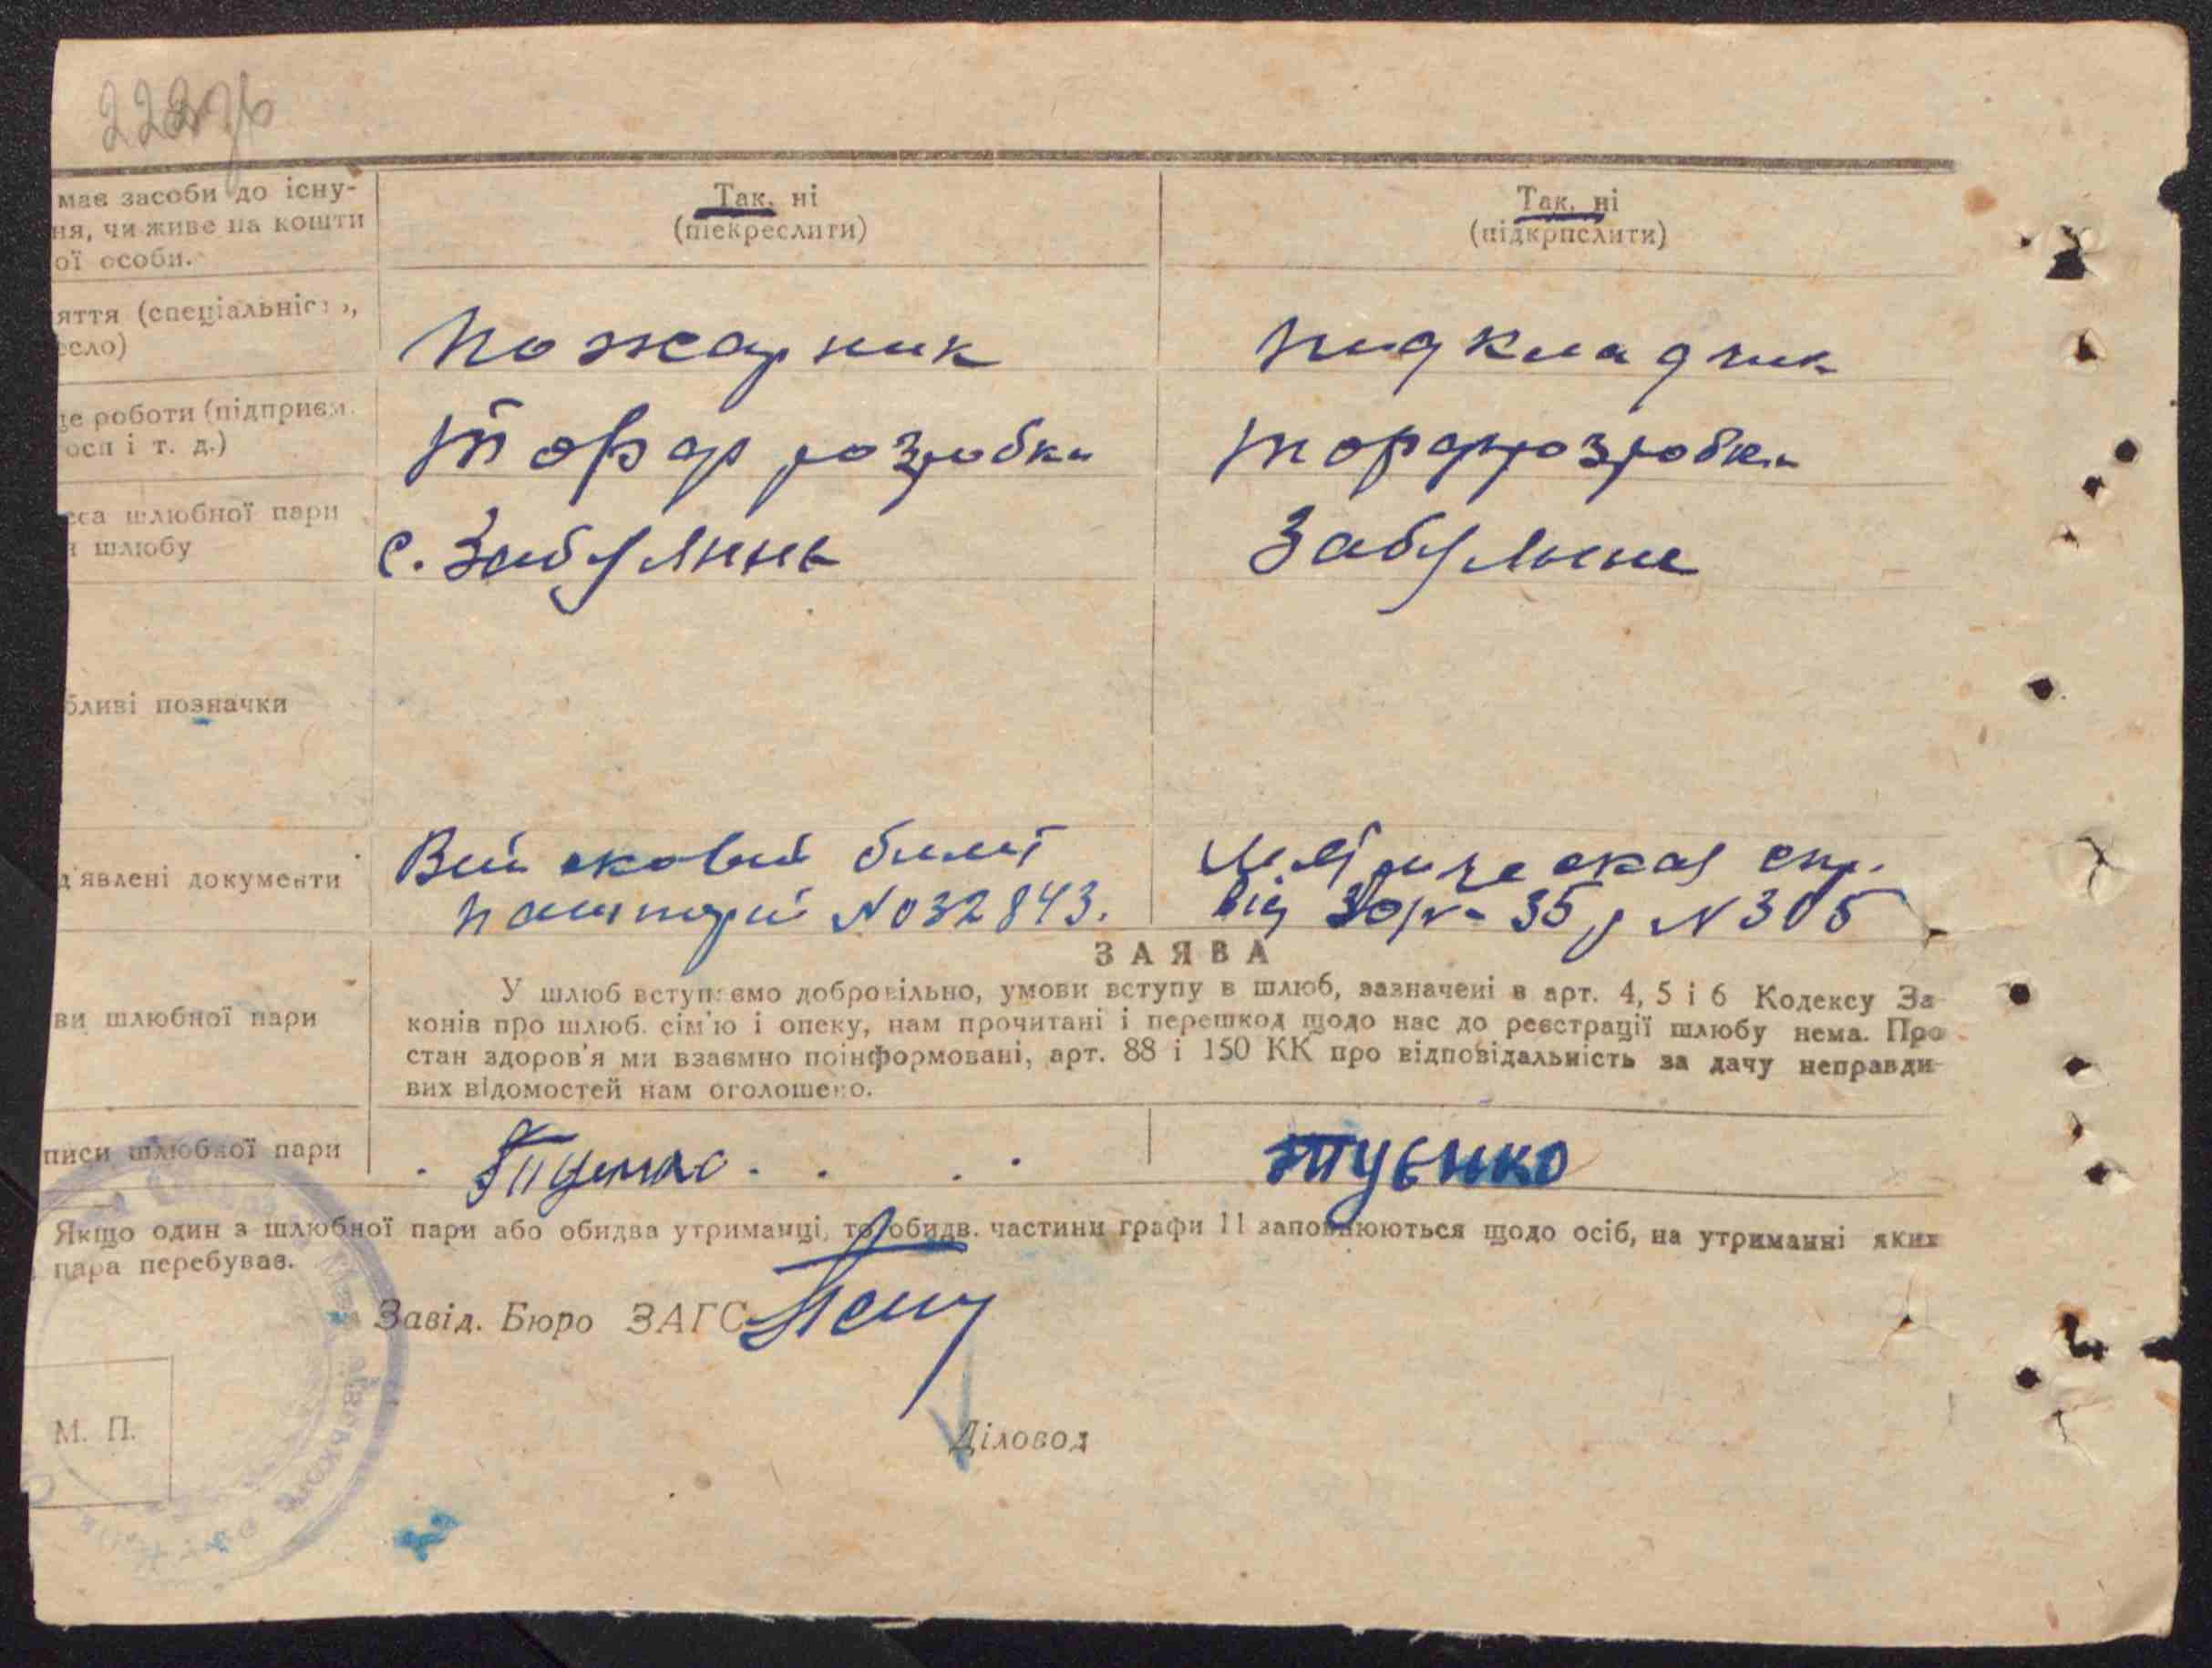 має засоби до існу-
ня, чи живе на кошти
ої особи.
Так, ні
(пiекреслити)
Так, ні
(підкрпслити)
яття (спеціальність,
есло)
пожарник
пидкладчик
це роботи (підприєм.
осп і т. д.)
торф розробки
торфрозробки
еса шлюбної пари
я шлюбу
с. Забуянне
Забуяне
бливі позначки
д'явлені документи
Війсковий билет
пашпорт №032843.
Метрическая спр.
від 30/IV-35 р №305
ЗАЯВА
ви шлюбної пари
У шлюб вступаємо добровільно, умови вступу в шлюб, зазначені в арт. 4, 5 і 6 Кодексу За-
конів про шлюб. сім'ю і опеку, нам прочитані і перешкод щодо нас до реєстрації шлюбу нема. Про
стан здоров'я ми взаємно поінформовані, арт. 88 і 150 КК про відповідальність за дачу неправди-
вих відомостей нам оголошено.
писи шлюбної пари
туєнко
Якщо один з шлюбної пари або обидва утриманці, то обидв. частини графи 11 заповнюються щодо осіб, на утриманні яких
пара перебуває.
Завід. Бюро ЗАГС
М. П.
Діловод